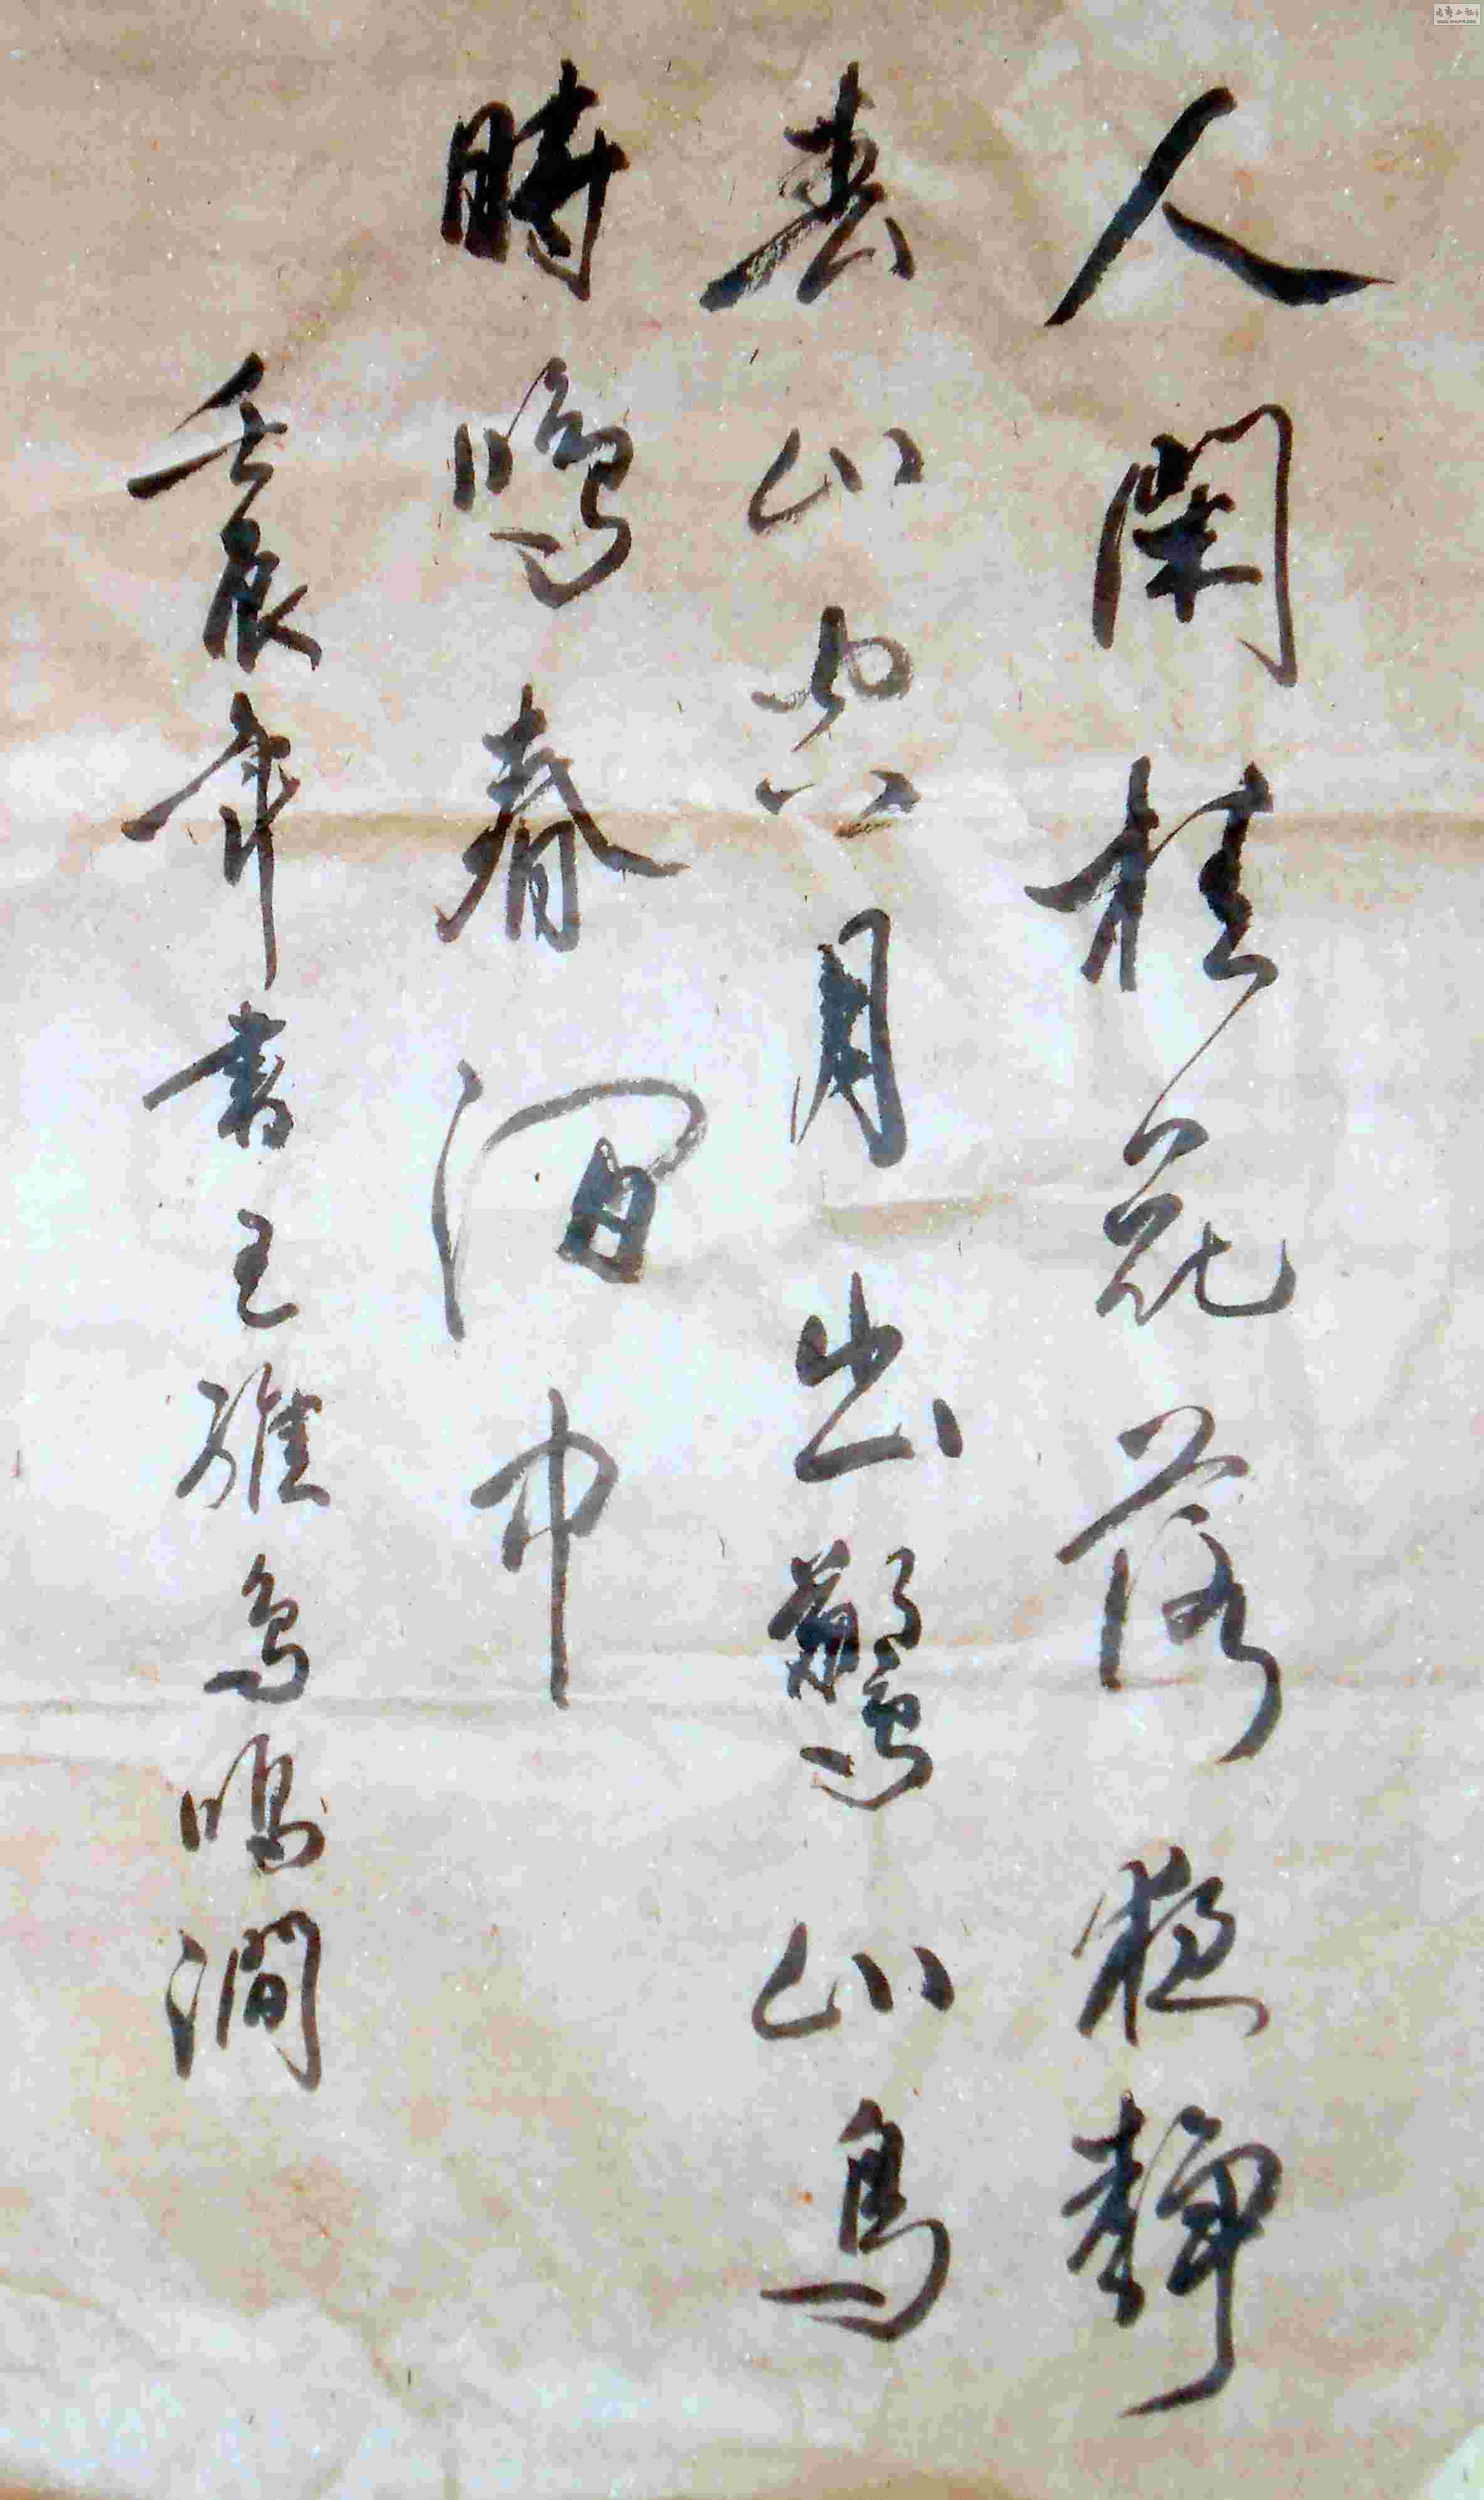 人閑桂花落夜靜
春山空月出驚山鳥
時鳴春澗中
壬辰年書王維鳥鳴澗
WWW.SHUFA.ORG